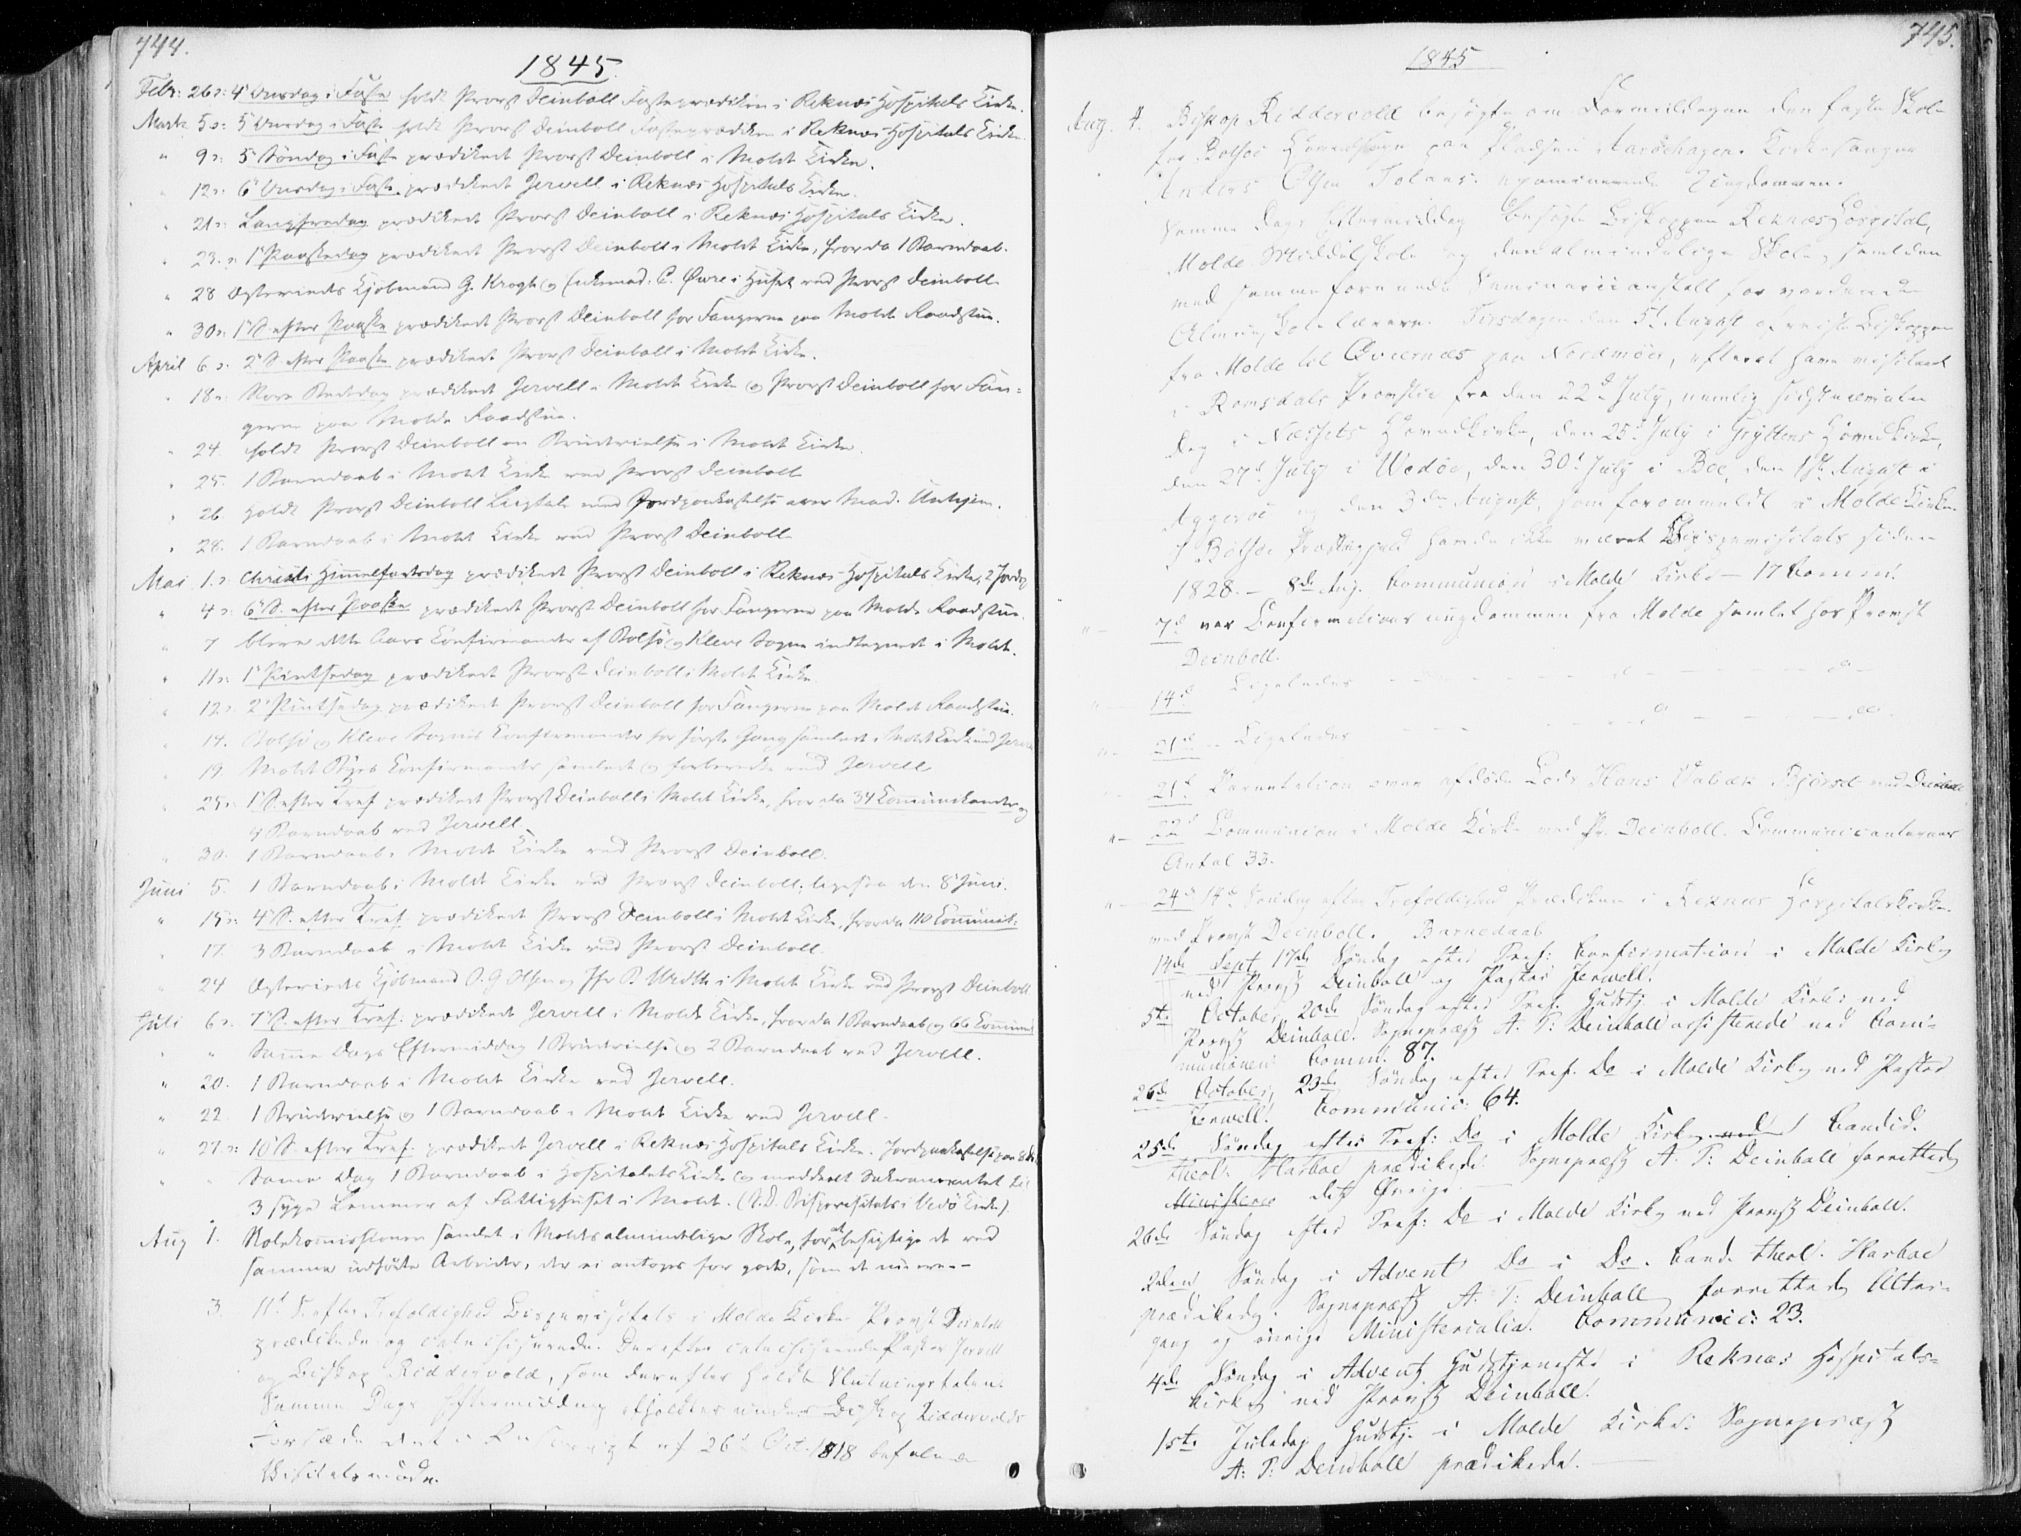 744.
1845.
Febr: 26 s: 4 Onsdag i Faste holdt Provst Deinboll Fasteprædiken i Reknæs Hospitals Kirke.
Marts 5 s: 5 Onsdag i Faste holdt Provst Deinboll Fasteprædiken i Reknæs Hospitals Kirke.
" 9 s: 5 Søndag i Faste prædikede Provst Deinboll i Molde Kirke.
" 12 s: 6 Onsdag i Faste prædikede Jervell i Reknæs Hospitals Kirke.
" 21 s: Langfredag prædikede Provst Deinboll i Reknæs Hospitals Kirke.
" 23. s: 1 Paaskedag prædikede Provst Deinboll i Molde Kirke, hvor da 1 Barnedaab.
" 28 Ægteviedes Kjøbmand G. Krogh og Enkemad. C. Øwre i Huset ved Provst Deinboll.
" 30 s: 1 S. efter Paaske prædikede Provst Deinboll for Fangerne paa Molde Raadstue.
April 6 s: 2 S. efter Paaske prædikede Provst Deinboll i Molde Kirke.
" 18 s: Store Bededag prædikede Jervell i Molde Kirke og Provst Deinboll for Fan=
gerne paa Molde Raadstue.
" 24. holdt Provst Deinboll en Brudevielse i Molde Kirke.
" 25. 1 Barnedaab i Molde Kirke ved Provst Deinboll
" 26 Holdt Provst Deinboll Liigtale med Jordpaakastelse over Mad.
" 28. 1 Barnedaab i Molde Kirke ved Provst Deinboll
Mai 1. s. Christi Himmelfartsdag prædikede Provst Deinboll i Reknæs Hospitals Kirke, 2 Jordp
" 4 s: 6 S. efter Paaske prædikede Provst Deinboll for Fangerne paa Molde Raadstue.
" 7 bleve dette Aars Confirmander af Bolsø og Kleve Sogne indtegnede i Molde.
" 11 s: 1 Pintsedag prædikede Provst Deinboll i Molde Kirke
" 12 s. 2 Pintsedag prædikede Provst Deinboll for Fangerne paa Molde Raadstue.
" 14. Bolsø og Kleve Sognes Confirmander for første Gang samlede i Molde Kirke ved Jervell
" 19 Molde Byes Confirmander samlede og forberedte ved Jervell
" 25 s: 1 S. efter Tref prædikede Provst Deinboll i Molde Kirke, hvor da 34 Communikanter og
4 Barnedaab ved Jervell
" 30. 1 Barnedaab i Molde Kirke ved Provst Deinboll.
Juni 5. 1 Barnedaab i Molde Kirke ved Provst Deinboll; ligesaa den 8 Juni.
" 15 s: 4 S. efter Tref. prædikede Provst Deinboll i Molde Kirke, hvor da 110 Communik:
" 17. 3 Barnedaab i Molde Kirke ved Provst Deinboll.
" 24 Ægteviedes Kjøbmand O. G. Olsen og Jfr P. i Molde Kirke ved Provst Deinboll
Juli 6 s. 7 S. efter Tref: prædikede Jervell i Molde Kirke, hvor da 1 Barnedaab og 66 Commun
" " Samme Dags Eftermiddag 1 Brudevielse og 2 Barnedaab ved Jervell.
" 20. 1 Barnedaab i Molde Kirke ved Jervell.
" 22 1 Brudevielse og 1 Barnedaab i Molde Kirke ved Jervell.
" 27 s: 10 S. efter Tref. prædikede Jervell i Reknæs Hospitals Kirke. Jordpaakastelse paa
" " Samme Dag 1 Barnedaab i Hospitalets Kirke og meddeelt Sakramentet til
3 syge Lemmer af Fattighuset i Molde. (S. D. Bispevisitats i Vedø Kirke)
Aug 1. Skolekomissionen samlet i Moldes almindelige Skole, for at besigtige de ved
samme udførte Arbeider, der ei antoges for gode, som de nu ere.-
3. 11t S. efter Trefoldighed Bispevisitats i Molde Kirke Provst Deinboll
prædikede og catechiserede. Derefter catechiserede Pastor Jervell
og Biskop Riddervold, som derefter holdt Slutningstalen.
Samme Dags Eftermiddag afholdtes under Biskop Riddervolds
Forsæde det i Rescript af 26d Oct. 1818 befalede
Visitatsmøde.
745.
1845
Aug. 4. Biskop Riddervold besøgte om Formiddagen den faste Skole
for Bolsøe Hovedsogn paa Pladsen Aarøehagen. Kirkesanger
Anders Olsen examinerede Ungdommen.
Samme Dags Eftermiddag besøgte Biskoppen Reknæs Hospital,
Molde Middelskole og den almindelige Skole, samt den
med samme forenede Seminarieanstalt for vordende
Almueskolelærere. Tirsdagen den 5t August afreiste Biskoppen
fra Molde til Qvernæs paa Nordmøer, efterat have visiteret
i Romsdals Provstie fra den 22d July, nemlig sidstnævnte
Dag i Næssets Hovedkirke, den 25d July i Gryttens Hovedkirke,
den 27d July i Wedøe, den 30d July i Boe, den 1st August i
Aggerøe og den 3die August, som forommeldt i Molde Kirke.
I Bolsøe Præstegjeld havde ikke været Bispevisitats siden
1828. - 8de Aug. Communion i Molde Kirke - 17 Comm.
" - 7d var Confirmations ungdommen fra Molde samlet hos Provst
Deinboll.
" - 14d Ligeledes - - - - d - - - - - d -
" - 21d - Ligeledes - - - - d - - - - do.
21d Parentation over afdøde Lods Hans ved Deinboll
" - 22d Communion i Molde Kirke ved Pr. Deinboll. Communicanternes
Antal 33.
" - 24d 14d Søndag efter Trefoldighed Prædiken i Reknæs Hospitalskirke
ved Provst Deinboll. Barnedaab
14de Sept. 17de Søndag efter Tref: Confirmation i Molde Kirke
ved Provst Deinboll og Pastor Jerwell.
5te October, 20de Søndag efter Tref. Gudstj. i Molde Kirke ved
Provst Deinboll. Sognepræst A. T: Deinboll assisterede ved Com=
munionen. Comm. 87.
26de October, 23de Søndag efter Tref. Do i Molde Kirke ved Pastor
Jerwell. Communic: 64.
25de Søndag efter Tref: Do i Molde Kirke. ved Candid.
theol: Harboe prædikede. Sognepræst A. T: Deinboll forrettede
Ministerie det Øvrige.
26de Søndag efter Tref: Do i Molde Kirke ved Provst Deinboll.
2den Søndag i Advent Do i Do. Cand. theol. Harboe
prædikede. Sognepræst A. T: Deinboll forrettede Alter-
gang og øvrige Ministerialia. Communic: 23.
4de Søndag i Advent Gudstjeneste i Reknæs Hospitals=
kirke ved Provst Deinboll.
1ste Juledag Gudstj. i Molde Kirke: Sognepræst
A: T: Deinboll prædikede.